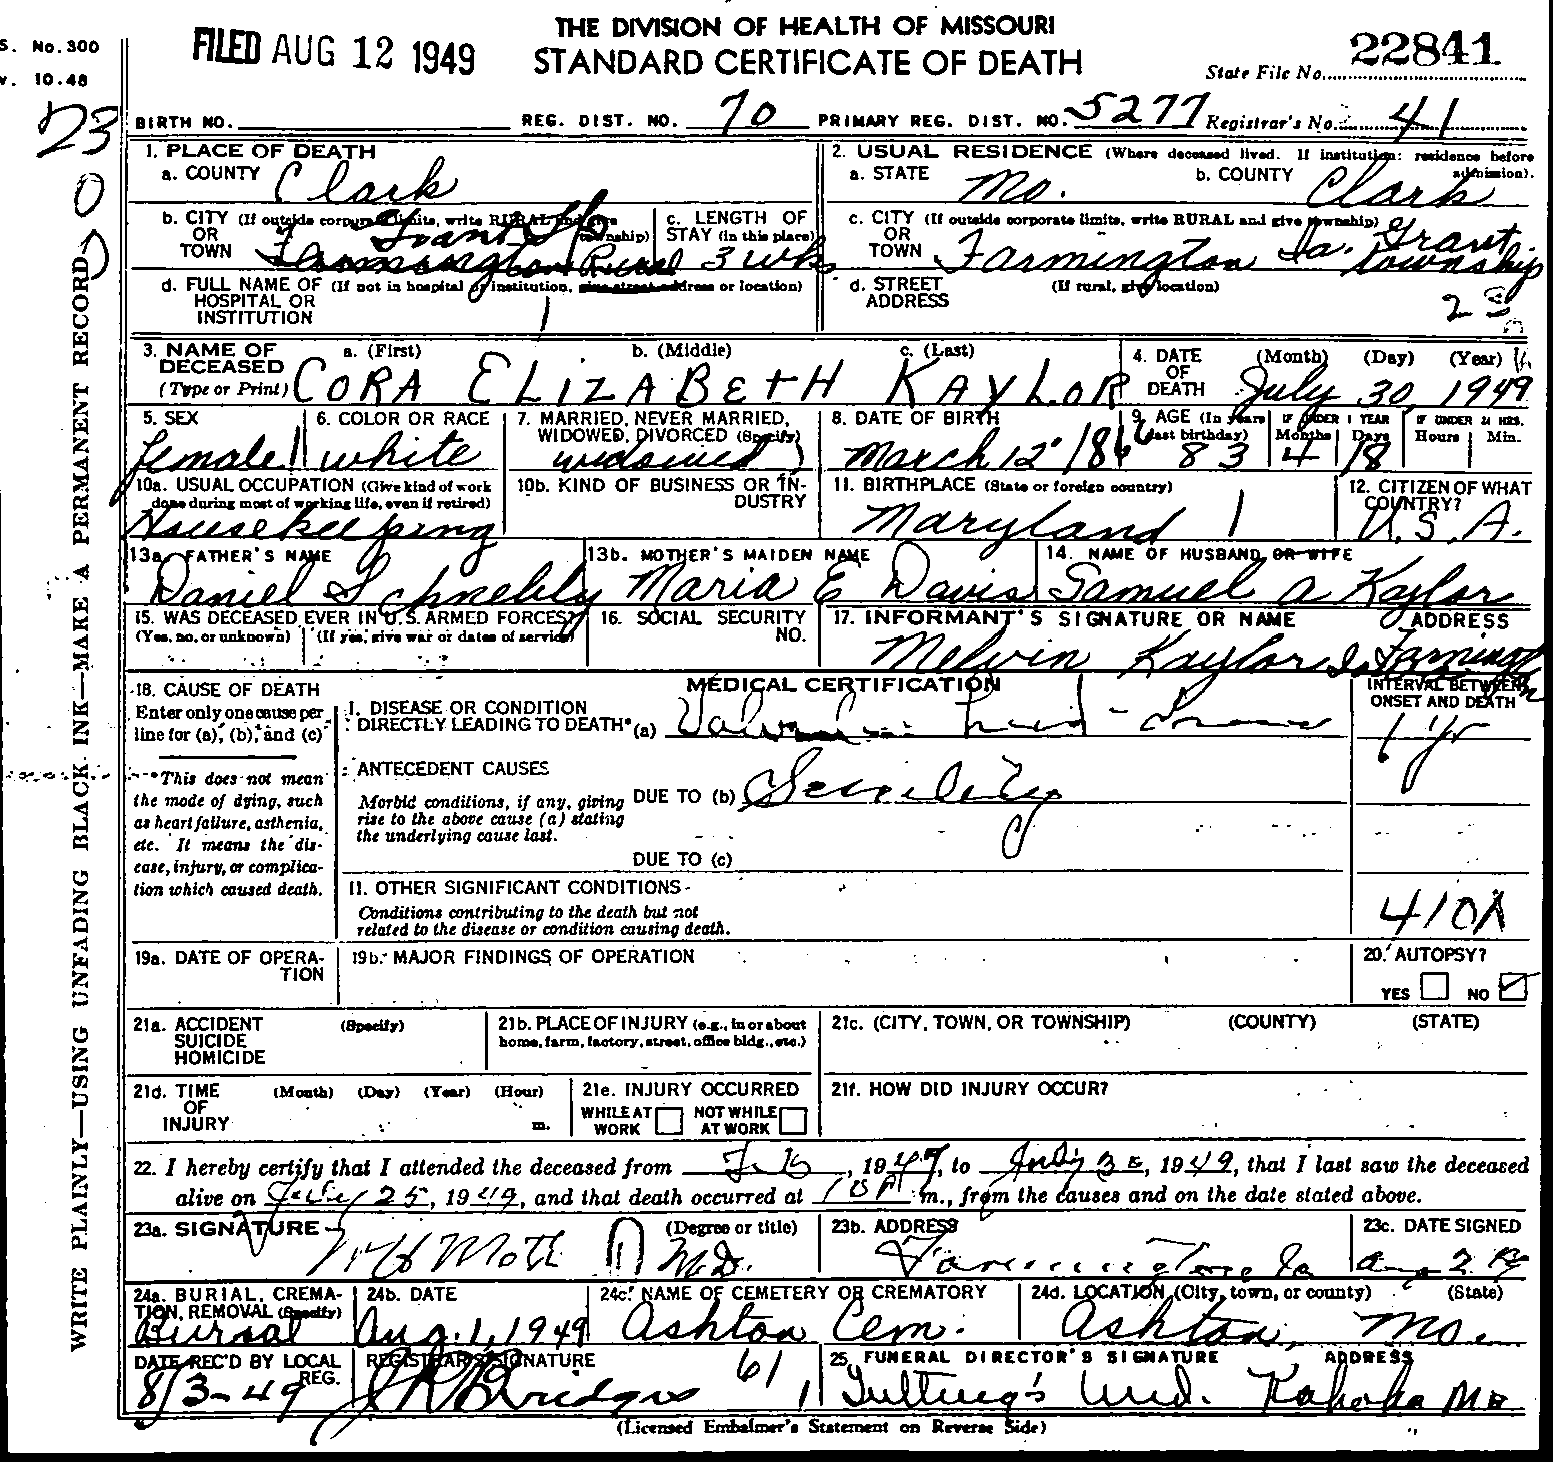 THE DIVISION OF HEALTH OF MISSOURI
STANDARD CERTIFICATE OF DEATH
S. No. 300
v. 10.48
FILED AUG 12 1949
State File No. 22841
BIRTH NO. REG. DIST. NO. 70 PRIMARY REG. DIST. NO. 5277 Registrar's No. 41
73
0
WRITE PLAINLY—USING UNFADING BLACK INK—MAKE A PERMANENT RECORD
1. PLACE OF DEATH
a. COUNTY Clark
b. CITY (If outside corporate limits, write RURAL and give township)
OR
TOWN Farmington Rural Grant
c. LENGTH OF STAY (in this place) 3 wks
d. FULL NAME OF (If not in hospital or institution, give street address or location)
HOSPITAL OR
INSTITUTION
2. USUAL RESIDENCE (Where deceased lived. If institution: residence before admission).
a. STATE Mo. b. COUNTY Clark
c. CITY (If outside corporate limits, write RURAL and give township)
OR
TOWN Farmington Ia. Grant township
d. STREET (If rural, give location)
ADDRESS
3. NAME OF DECEASED (Type or Print)
a. (First) b. (Middle) c. (Last)
CORA ELIZABETH KAYLOR
4. DATE OF DEATH (Month) (Day) (Year)
July 30, 1949
5. SEX female
6. COLOR OR RACE white
7. MARRIED, NEVER MARRIED, WIDOWED, DIVORCED (Specify) widowed
8. DATE OF BIRTH March 12 1866
9. AGE (In years last birthday) 83
IF UNDER 1 YEAR Months 4 Days 18
IF UNDER 24 HRS. Hours Min.
10a. USUAL OCCUPATION (Give kind of work done during most of working life, even if retired)
Housekeeping
10b. KIND OF BUSINESS OR INDUSTRY
11. BIRTHPLACE (State or foreign country) Maryland
12. CITIZEN OF WHAT COUNTRY? U.S.A.
13a. FATHER'S NAME Daniel Schnebly
13b. MOTHER'S MAIDEN NAME Maria E Davis
14. NAME OF HUSBAND OR WIFE Samuel A Kaylor
15. WAS DECEASED EVER IN U.S. ARMED FORCES?
(Yes, no, or unknown) (If yes, give war or dates of service)
16. SOCIAL SECURITY NO.
17. INFORMANT'S SIGNATURE OR NAME ADDRESS
Melvin Kaylor Farmington Ia
18. CAUSE OF DEATH
Enter only one cause per line for (a), (b), and (c)
*This does not mean the mode of dying, such as heart failure, asthenia, etc. It means the disease, injury, or complication which caused death.
MEDICAL CERTIFICATION
INTERVAL BETWEEN ONSET AND DEATH
I. DISEASE OR CONDITION
DIRECTLY LEADING TO DEATH* (a) Valvular
1 yr
ANTECEDENT CAUSES
Morbid conditions, if any, giving rise to the above cause (a) stating the underlying cause last.
DUE TO (b) Senility
DUE TO (c)
II. OTHER SIGNIFICANT CONDITIONS
Conditions contributing to the death but not related to the disease or condition causing death.
410X
19a. DATE OF OPERATION
19b. MAJOR FINDINGS OF OPERATION
20. AUTOPSY?
YES NO
21a. ACCIDENT (Specify)
SUICIDE
HOMICIDE
21b. PLACE OF INJURY (e.g., in or about home, farm, factory, street, office bldg., etc.)
21c. (CITY, TOWN, OR TOWNSHIP) (COUNTY) (STATE)
21d. TIME (Month) (Day) (Year) (Hour)
OF
INJURY m.
21e. INJURY OCCURRED
WHILE AT WORK NOT WHILE AT WORK
21f. HOW DID INJURY OCCUR?
22. I hereby certify that I attended the deceased from Feb, 1947, to July 30, 1949, that I last saw the deceased
alive on July 25, 1949, and that death occurred at m., from the causes and on the date stated above.
23a. SIGNATURE (Degree or title)
M.D.
23b. ADDRESS
Farmington Ia
23c. DATE SIGNED
Aug 2 49
24a. BURIAL, CREMATION, REMOVAL (Specify) Burial
24b. DATE Aug. 1, 1949
24c. NAME OF CEMETERY OR CREMATORY Ashton Cem.
24d. LOCATION (City, town, or county) (State)
Ashton, Mo.
DATE REC'D BY LOCAL REG. 8/3-49
REGISTRAR'S SIGNATURE Bridges 61
25. FUNERAL DIRECTOR'S SIGNATURE ADDRESS
Kahoka Mo
(Licensed Embalmer's Statement on Reverse Side)